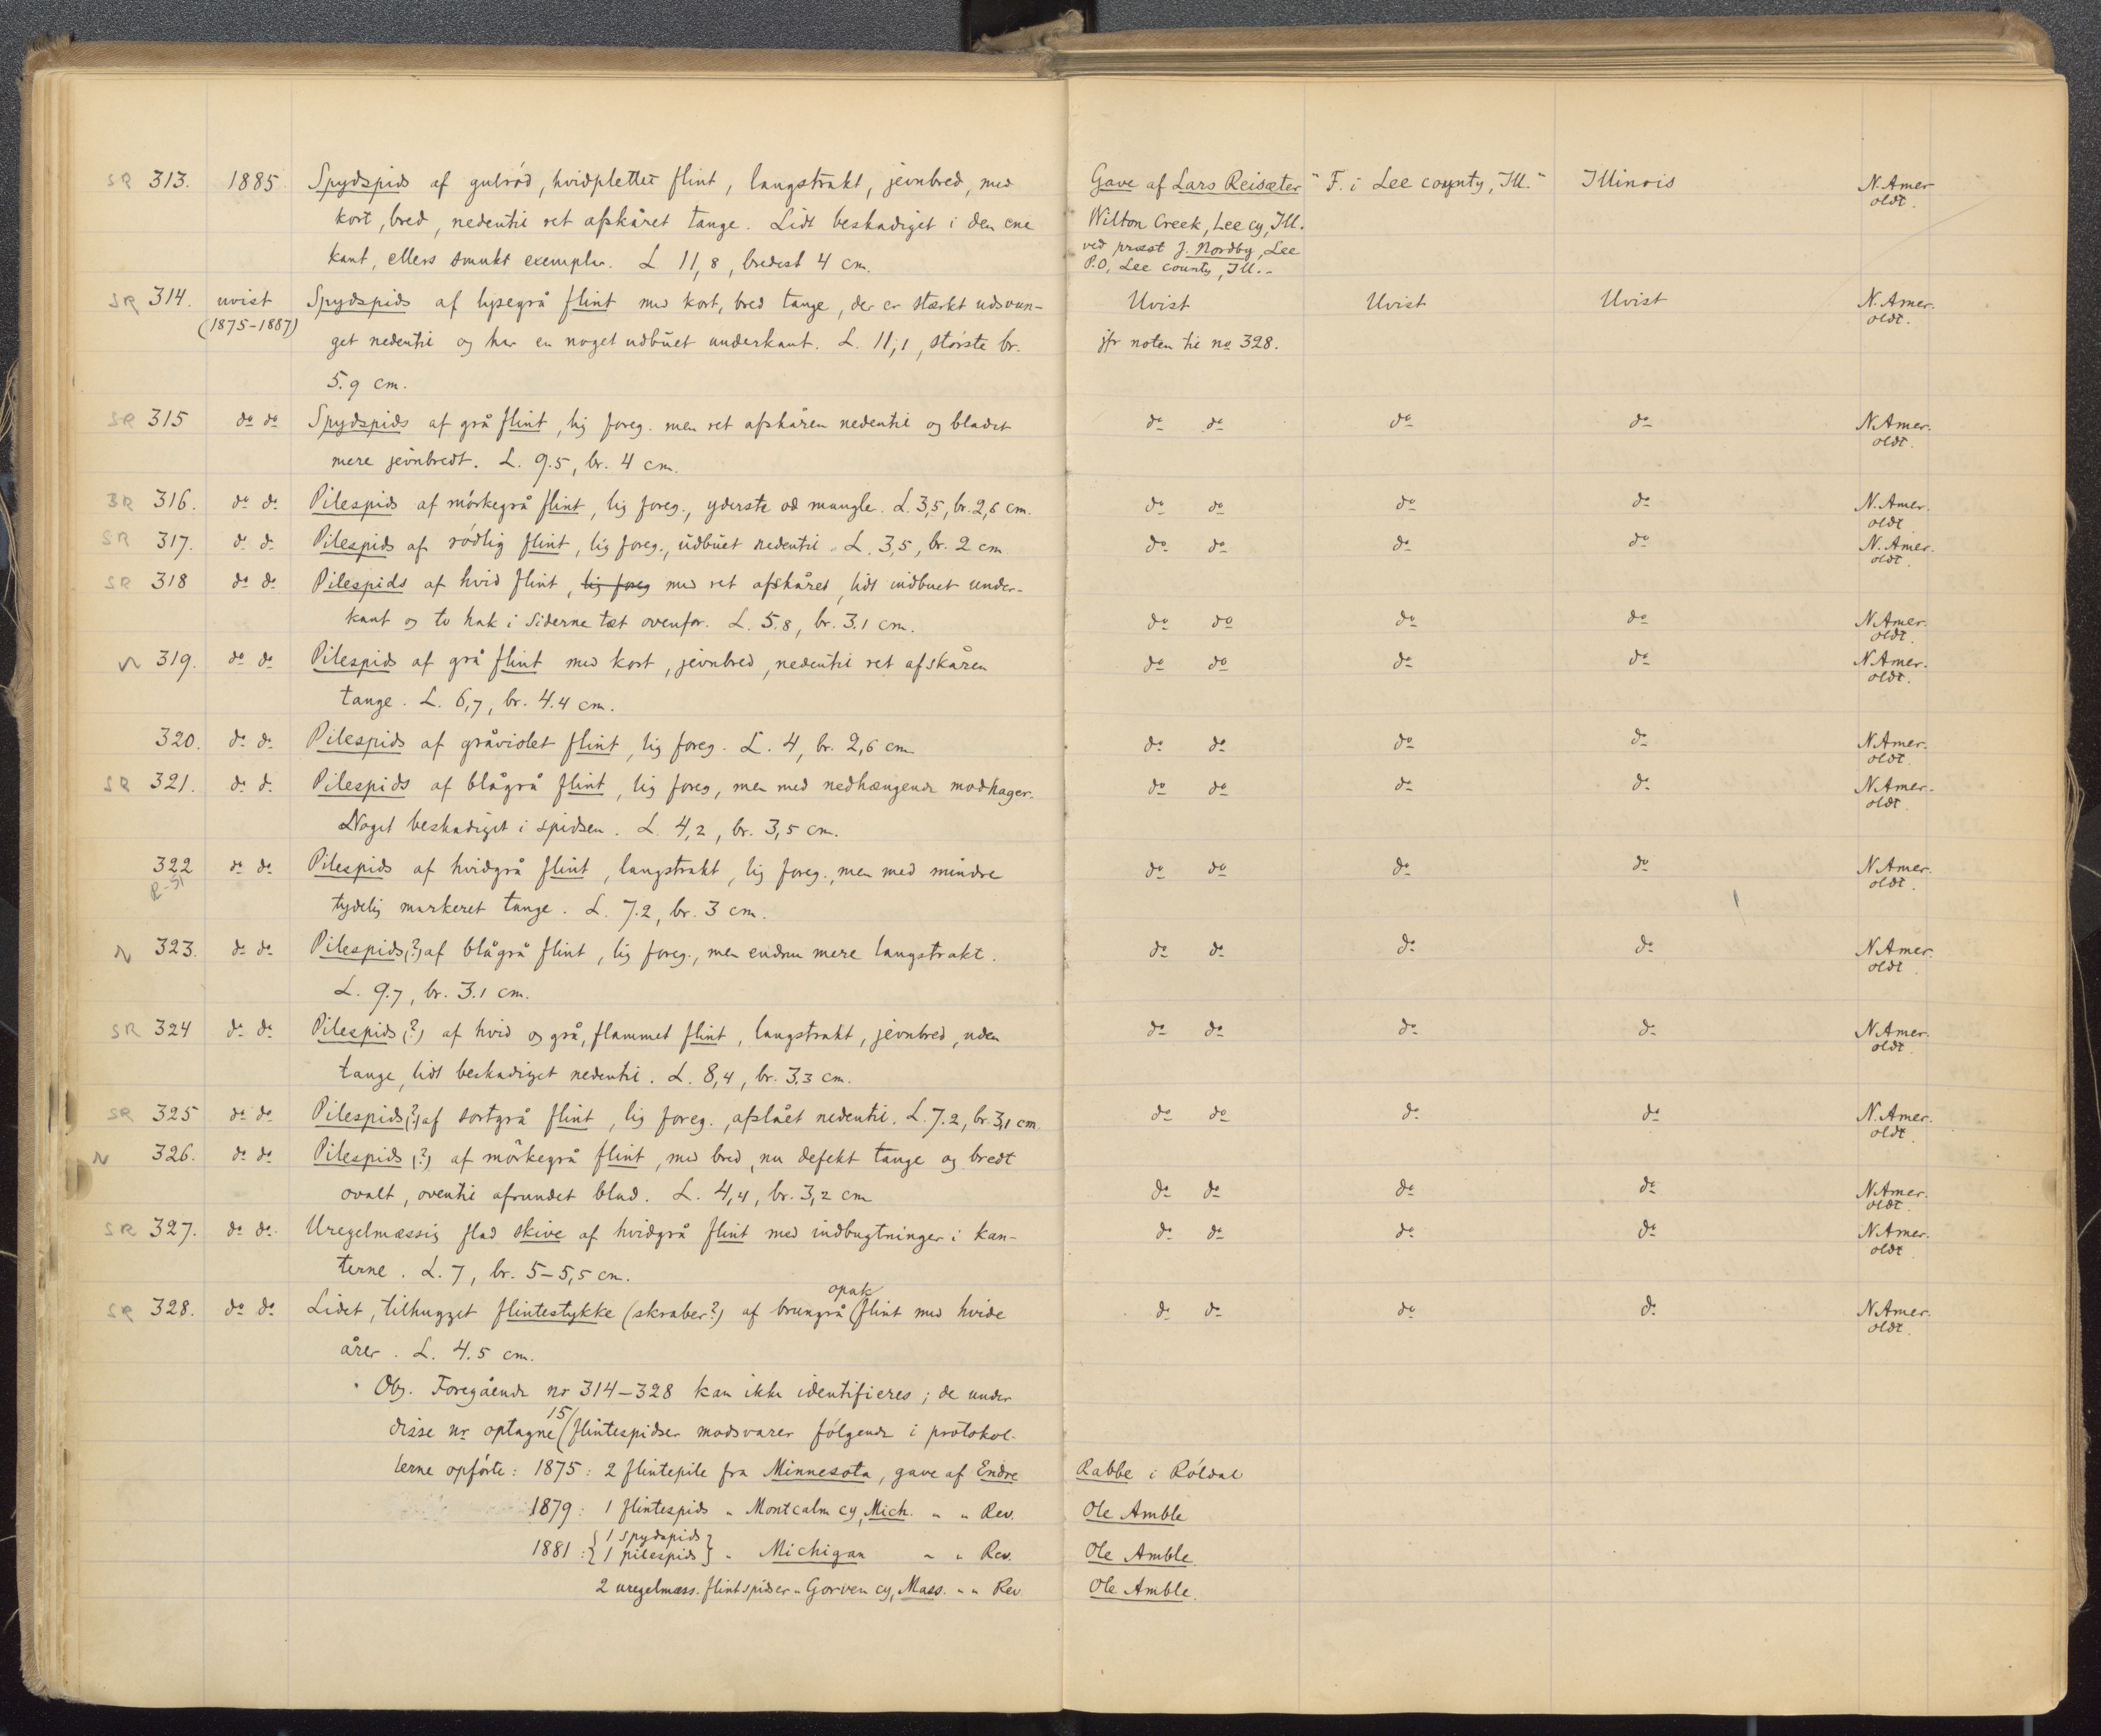 SR 313. 1885 Spydspids af gulrød, hvidplettet flint, langstrakt, jevnbred, med Gave af Lars Reisæter "F. i Lee county, Ill." Illinois N. Amer oldt.
kort, bred, nedentil ret afskåret tange. Lidt beskadiget i den ene Wilton Creek, Lee cy, Ill.
ved præst J. Nordby, Lee
kant, ellers smukt exemplar. L. 11,8, bredest 4 cm. P.O, Lee county, Ill.-
SR 314. uvist Spydspids af lysegrå flint med kort, bred tange, der er stærkt udsvun- Uvist Uvist Uvist N. Amer. oldt.
(1875-1887) get nedentil og har en noget udbuet underkant. L. 11,1, største br. jfr noten til no 328.
5.9 cm.
SR 315 do do Spydspids af grå flint, lig foreg. men ret afskåren nedentil og bladet do do do do N.Amer. oldt.
mere jevnbredt. L. 9.5, br. 4 cm.
SR 316. do do Pilespids af mørkegrå flint, lig foreg., yderste od mangle. L. 3,5, br. 2,6 cm. do do do do N. Amer. oldt
SR 317. do do Pilespids af rødlig flint, lig foreg., udbuet nedentil. L. 3,5, br. 2 cm do do do do N. Amer. oldt.
SR 318 do do Pilespids af hvid flint, lig foreg med ret afskåret, lidt indbuet under-
kant og to hak i siderne tæt ovenfor. L. 5.8, br. 3.1 cm. do do do do N.Amer. oldt.
N 319. do do Pilespids af grå flint med kort, jevnbred, nedentil ret afskåren do do do do N.Amer. oldt.
tange. L. 6,7, br. 4.4 cm.
320. do do Pilespids af gråviolet flint, lig foreg. L. 4, br. 2,6 cm do do do do N.Amer. oldt.
SR 321. do do Pilespids af blågrå flint, lig foreg, men med nedhængende modhager. do do do do N.Amer. oldt.
Noget beskadiget i spidsen. L. 4,2, br. 3,5 cm.
322 do do Pilespids af hvidgrå flint, langstrakt, lig foreg., men med mindre do do do do N.Amer. oldt.
R-51 tydelig markeret tange. L. 7.2, br. 3 cm.
N 323. do do Pilespids(?) af blågrå flint, lig foreg., men endnu mere langstrakt. do do do do N.Amer. oldt.
L. 9.7, br. 3.1 cm.
SR 324 do do Pilespids(?) af hvid og grå, flammet flint, langstrakt, jevnbred, uden do do do do N.Amer. oldt.
tange, lidt beskadiget nedentil. L. 8,4, br. 3.3 cm.
SR 325 do do Pilespids(?) af sortgrå flint, lig foreg., afslået nedentil. L. 7.2, br. 3,1 cm. do do do do N.Amer. oldt.
N 326. do do Pilespids(?) af mørkegrå flint, med bred, nu defekt tange og bredt
ovalt, oventil afrundet blad. L. 4,4, br. 3,2 cm do do do do N.Amer. oldt.
SR 327. do do. Uregelmæssig flad skive af hvidgrå flint med indbugtninger i kan- do do do do N.Amer. oldt
terne. L. 7, br. 5-5,5 cm.
opak
SR 328. do do Lidet, tilhugget flintestykke (skraber?) af brungrå flint med hvide do do do do N.Amer. oldt.
årer. L. 4.5 cm.
Obs. Foregående nr 314-328 kan ikke identifieres; de under
disse nr optagne 15 flintespidser modsvarer følgende i protokol-
lerne opførte: 1875: 2 flintepile fra Minnesota, gave af Endre Rabbe i Røldal
1879: 1 flintespids " Montcalm cy, Mich. " " Rev. Ole Amble
1881: {1 spydspids
1 pilespids} " Michigan " " Rev. Ole Amble.
2 uregelmæss. flintspidser " Gorven cy, Mass. " " Rev Ole Amble.